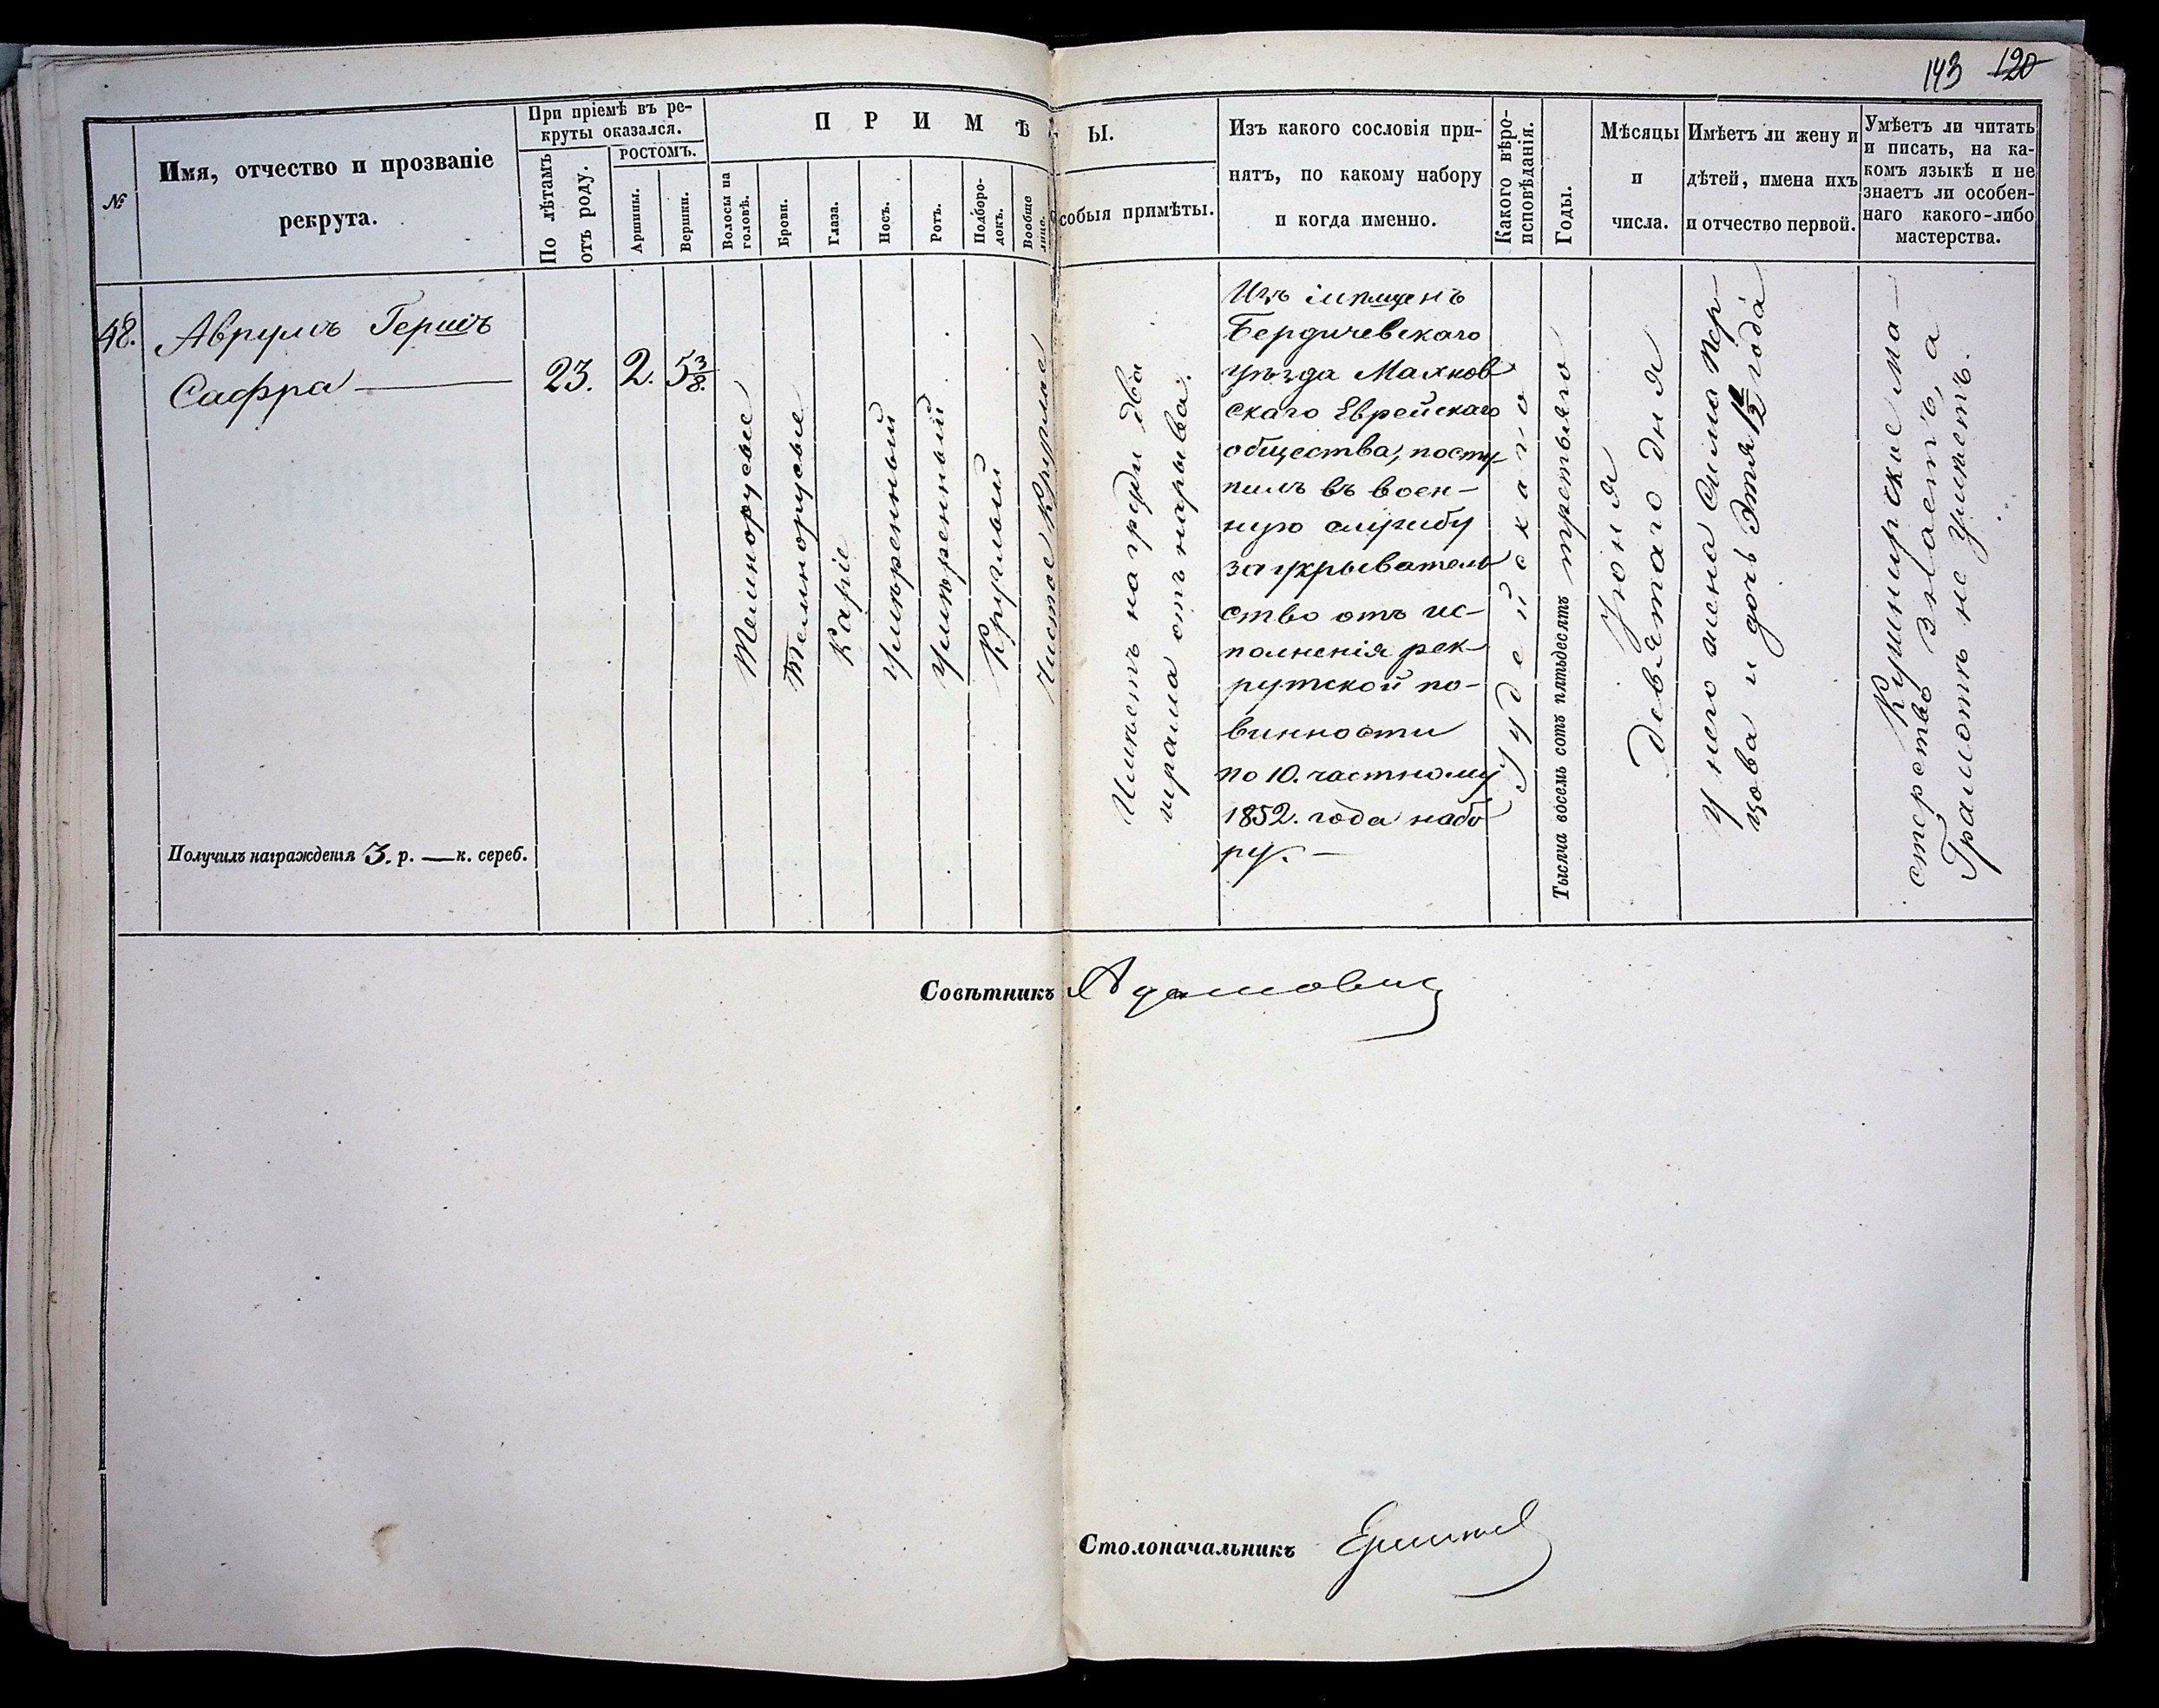 143 120
При пріемѣ въ ре-
круты оказался.
П Р И М Ѣ
Ы.
№
Имя, отчество и прозваніе
рекрута.
По лѣтамъ
отъ роду.
РОСТОМЪ.
Аршины.
Вершки.
Волосы на
головѣ.
Брови.
Глаза.
Носъ.
Ротъ.
Подборо-
докъ.
Вообще
лицо.
собыя примѣты.
Изъ какого сословія при-
нятъ, по какому набору
и когда именно.
Какого вѣро-
исповѣданія.
Годы.
Мѣсяцы
и
числа.
Имѣетъ ли жену и
дѣтей, имена ихъ
и отчество первой.
Умѣетъ ли читать
и писать, на ка-
комъ языкѣ и не
знаетъ ли особен-
наго какого-либо
мастерства.
48.
Аврумъ Гершъ
Сафра
23.
2.
5 3/8.
Темнорусые
Темнорусые
Каріе
Умѣренный
Умѣренный
Круглый
Чистое Круглое
Имѣетъ на груди два
шрама отъ нарыва.
Изъ мѣщанъ
Бердичевскаго
уѣзда Махнов
скаго Еврейскаго
общества, посту-
пилъ въ воен-
ную службу
за укрыватель
ство отъ ис-
полненія рек-
рутской по-
винности
по 10. частному
1852. года набо
ру. —
Іудейскаго
Тысяча восемь сотъ пятьдесятъ третьяго
Іюня
Девятаго дня
У него жена Сима Пер-
цова и дочь Этя 1 1/2 года
Кушнирское ма-
стерство знаетъ, а
Грамотѣ не умѣетъ.
Получилъ награжденія 3. р. — к. сереб.
Совѣтникъ Адамовичъ
Столоначальникъ